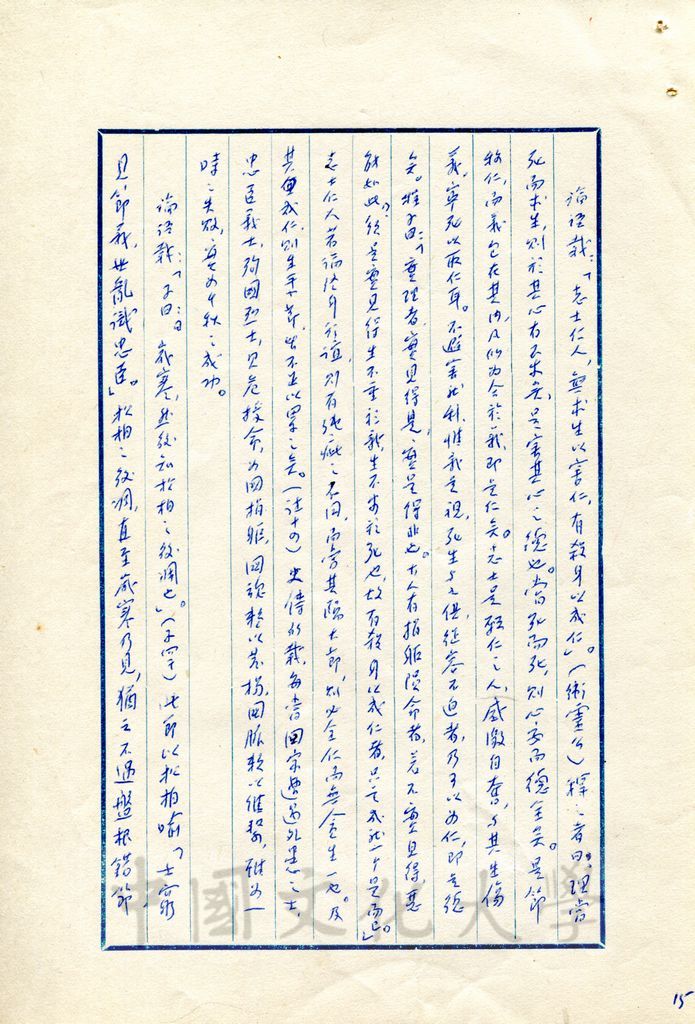 論語載:「志士仁人,無求生以害仁,有殺身以成仁」。(衛靈公)釋之者曰:理當
死而求生,則於其心有不安矣,是害其心之德也。當死而死,則心安而德全矣。是節
稱仁,而義包在其內,凡所為合於義,即是仁矣。志士是輕仁之人,感激自奮,與其生傷
義,寧死以取仁耳。不避害就利,惟義是視,死生與之俱,從容不迫者,乃可以為仁,即是德
矣。程子曰:「實理者,實見得是,實見得非也。古人有捐軀隕命者,若不實見得,惡
能如此?須是實見得生不重於義,生不安於死也,故有殺身以成仁者,只是成就一個是而已」。
志士仁人若論活身於誼,則有之不同,而當其臨大節,則必全仁而無全生一也。及
其重成仁,則生平大節,出不足以累之矣。(註十四)史傳所載,每當國家遭遇外患,之士,
忠臣義士,殉國烈士,見危授命,為國捐軀,國魂整以發揚,國脈賴以維繫,雖為一
時之失敗,實為千秋之成功。
論語載:「子曰:歲寒,然後知松柏之後凋也」(子罕)此節以松柏喻「士窮
見節義,世亂識忠臣。」松柏之後凋,直至歲寒乃見,猶之不遇盤根錯節
15
中國文化大學